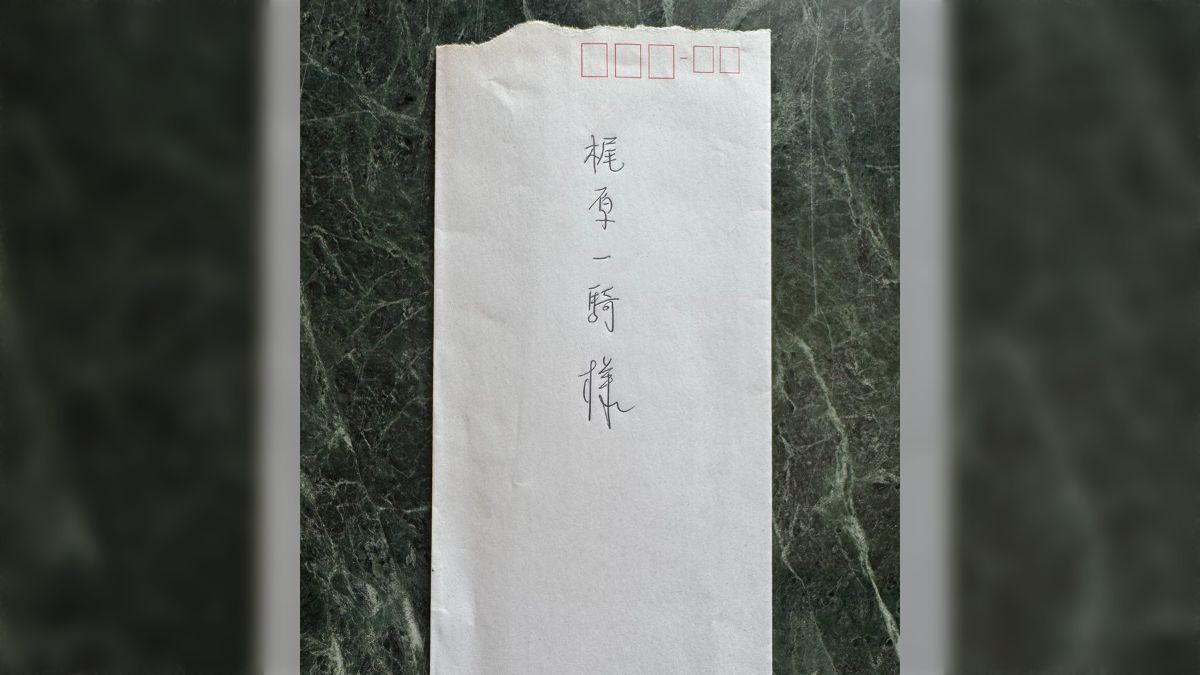 梶原一騎様